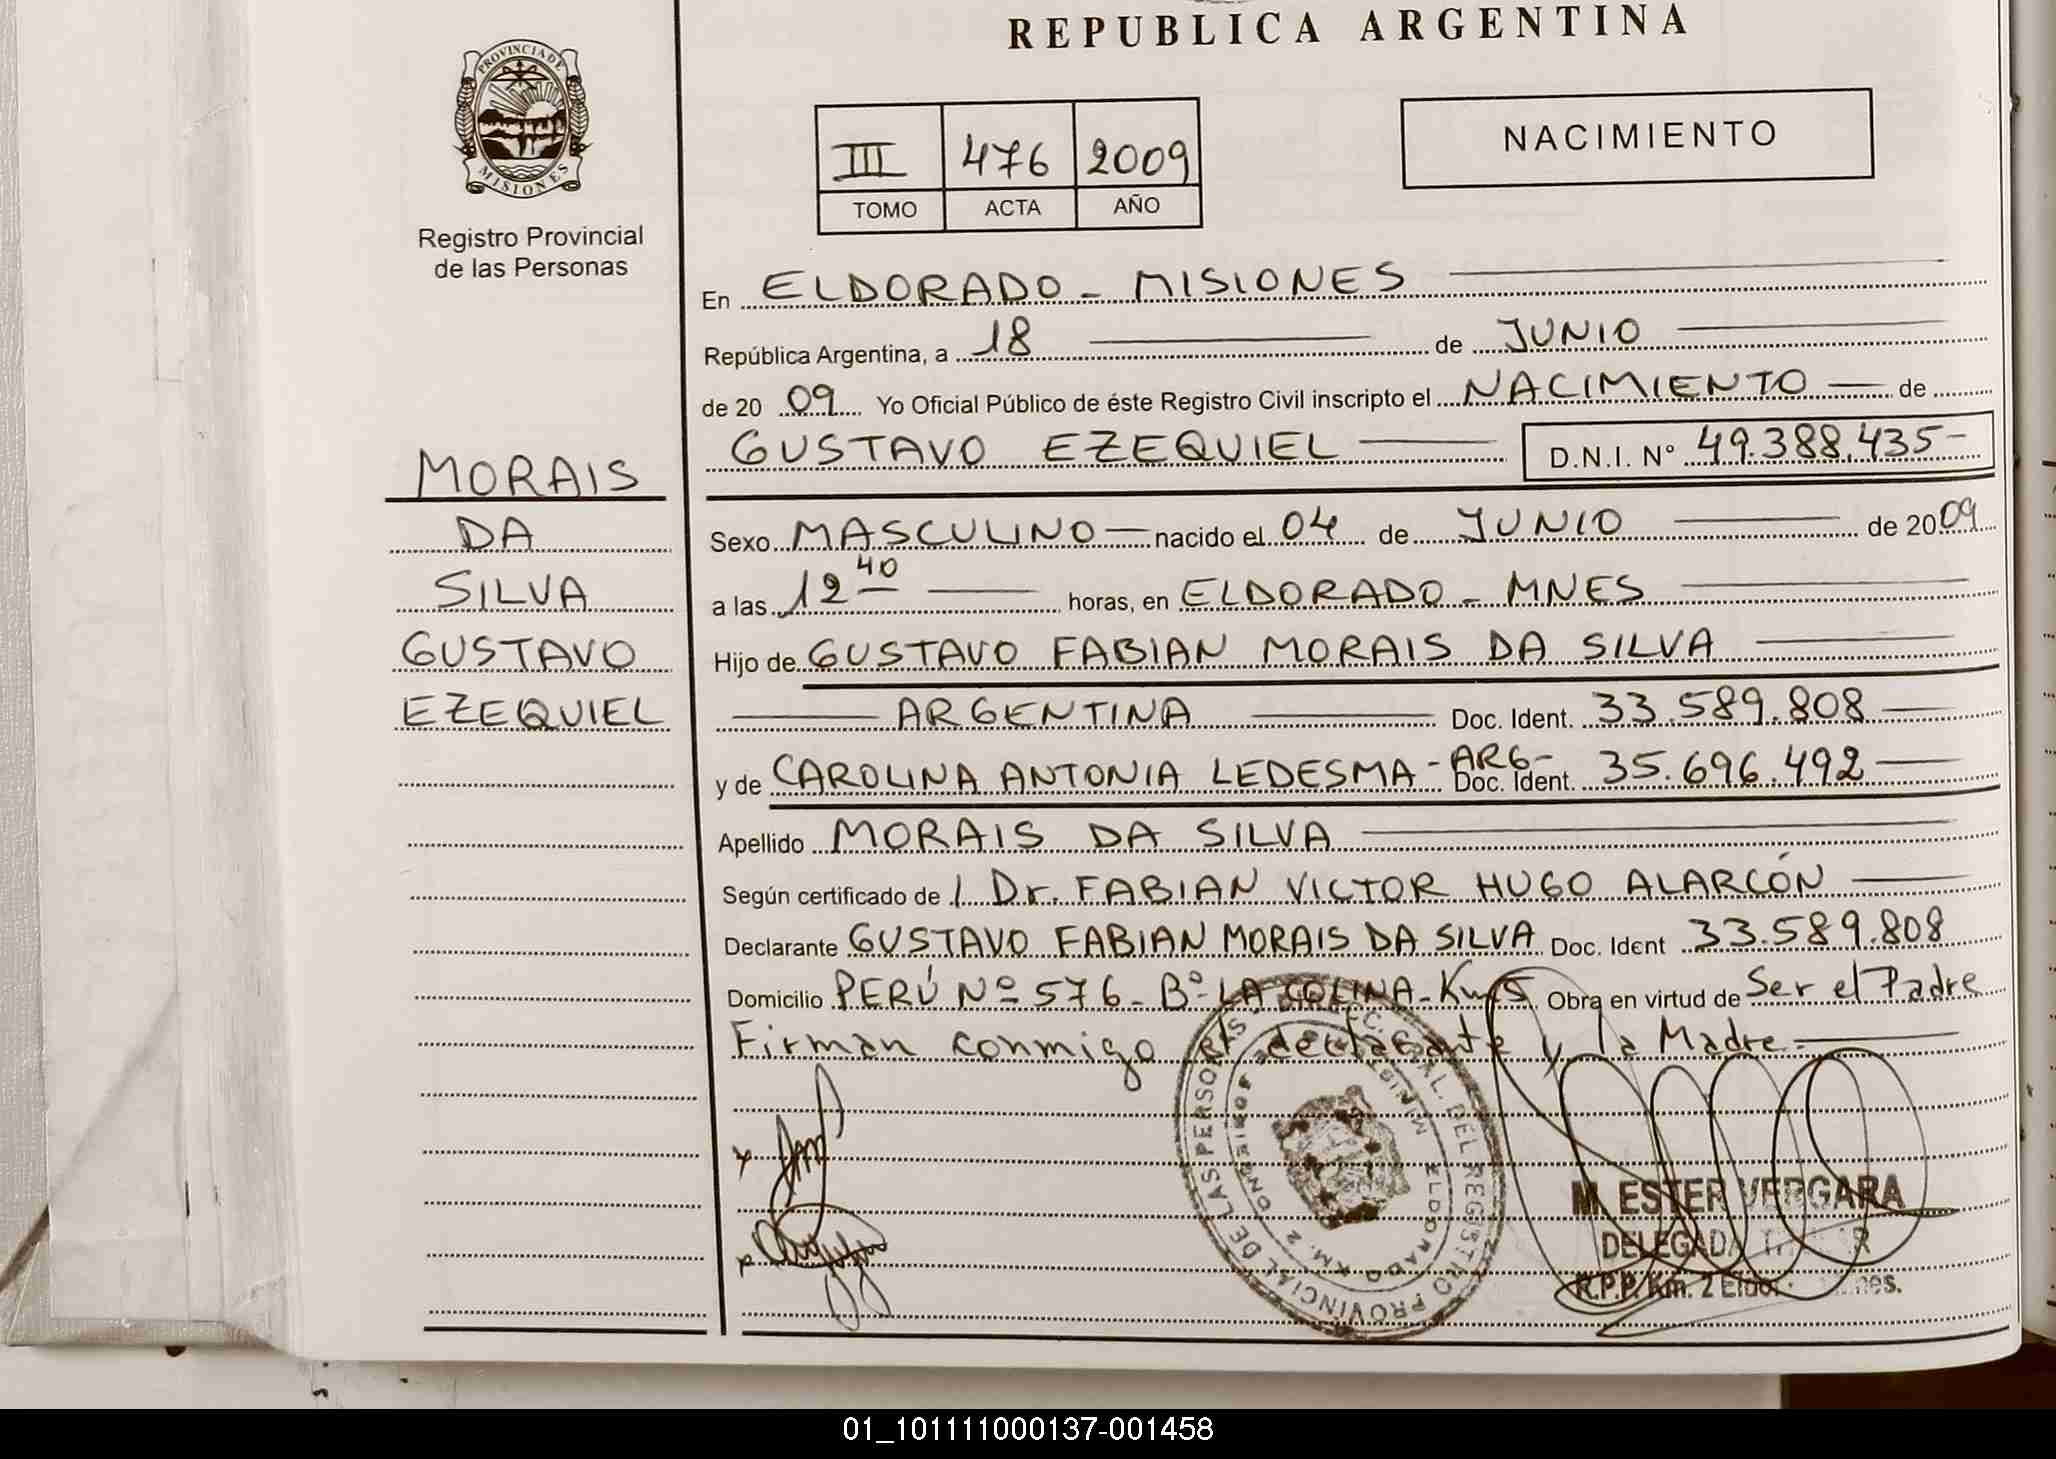 REPUBLICA ARGENTINA
PROVINCIA DE
MISIONES
Registro Provincial
de las Personas
III 476 2009
TOMO ACTA AÑO
NACIMIENTO
En ELDORADO - MISIONES
República Argentina, a 18 de JUNIO
de 20 09 Yo Oficial Público de éste Registro Civil inscripto el NACIMIENTO de
GUSTAVO EZEQUIEL D.N.I. N° 49.388.435-
MORAIS
DA
SILVA
GUSTAVO
EZEQUIEL
Sexo MASCULINO nacido el 04 de JUNIO de 2009
a las 12 40 horas, en ELDORADO - MNES
Hijo de GUSTAVO FABIAN MORAIS DA SILVA
ARGENTINA Doc. Ident. 33.589.808
y de CAROLINA ANTONIA LEDESMA - ARG - Doc. Ident. 35.696.492
Apellido MORAIS DA SILVA
Según certificado de Dr. FABIAN VICTOR HUGO ALARCÓN
Declarante GUSTAVO FABIAN MORAIS DA SILVA Doc. Ident 33.589.808
Domicilio PERÚ Nº 576 - Bº LA COLINA - Obra en virtud de Ser el Padre
Firman conmigo el declarante y la Madre
DEL REGISTRO PROVINCIAL DE LAS PERSONAS
ELDORADO KM. 2
M. ESTER VERGARA
DELEGADA
R.P.P. Km. 2
01_101111000137-001458